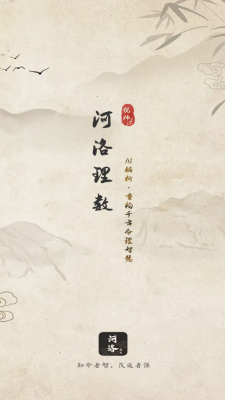 河洛理数
AI解析·重构千年命理智慧
河洛
知命者智，改运者强